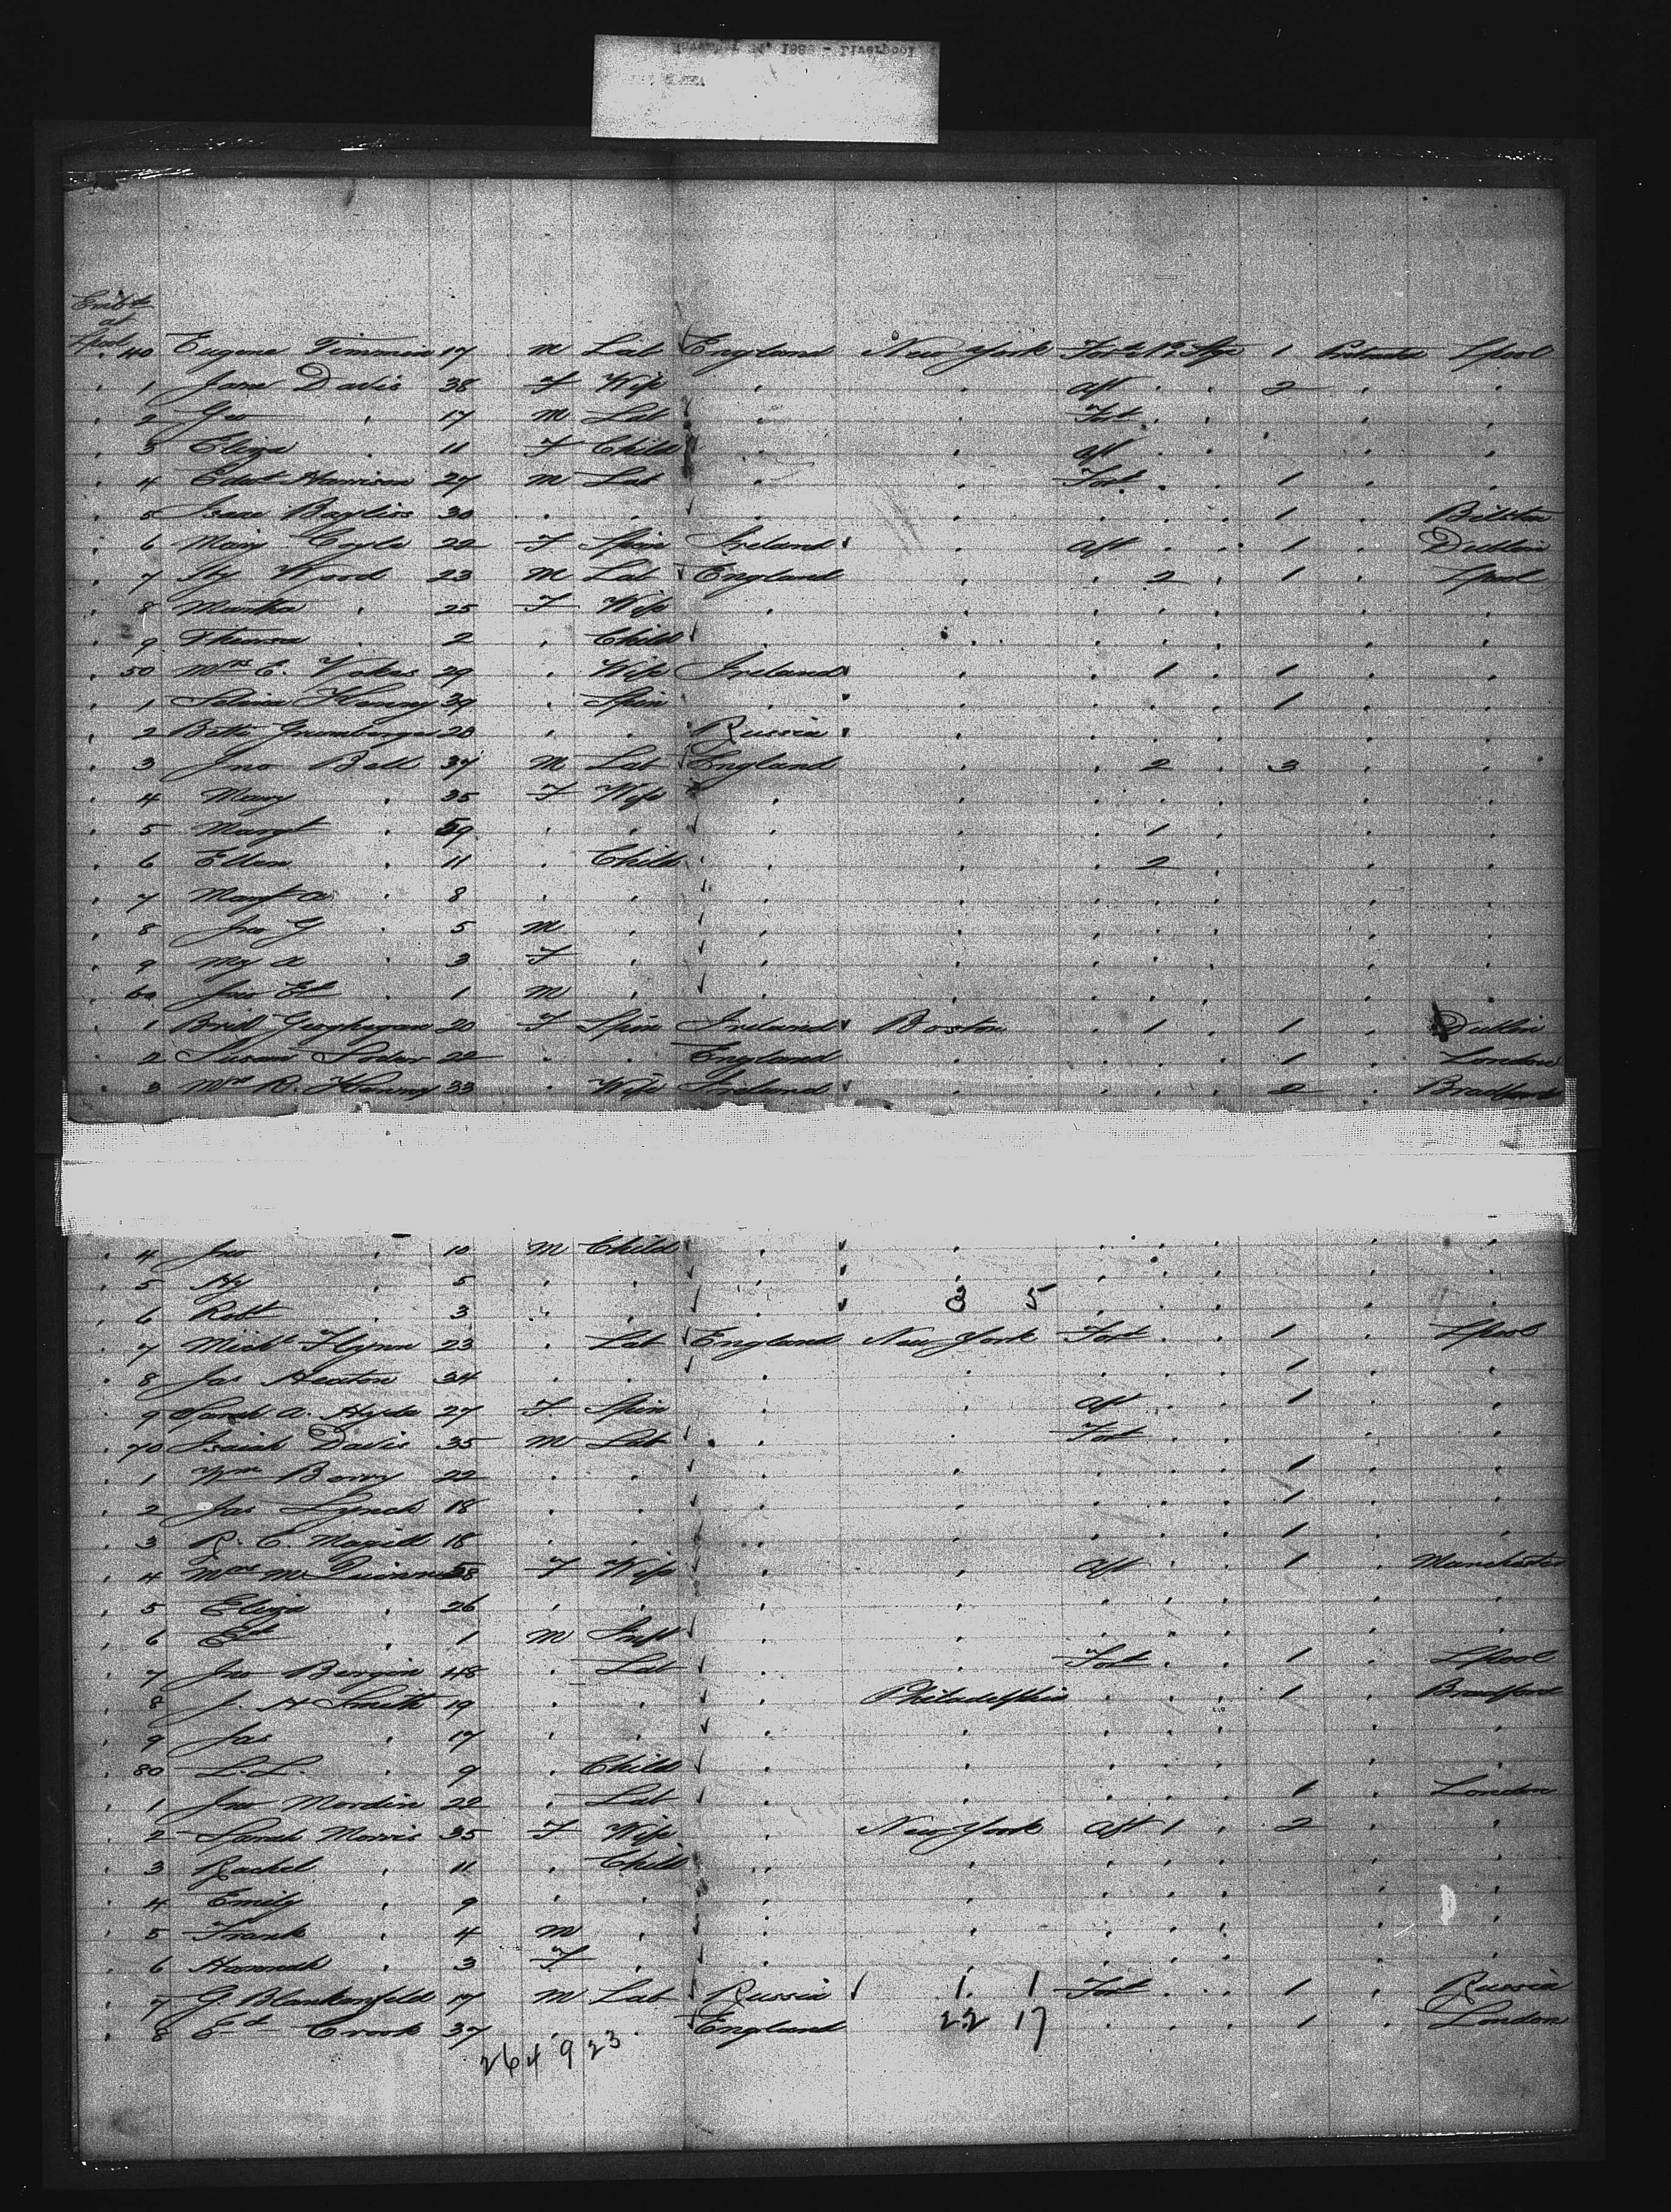 1888 - Liverpool
Embd
at
Lpool 40 Eugene Timmin 17 M Lab England New York Ford 1 Protracted Lpool
" 1 Jane Davis 38 F Wife " " Aft " " 2 " "
" 2 Geo " 17 M Lab " " Ford " " "
" 3 Eliza " 11 F Child " " Aft " " "
" 4 Edwd Harrison 27 M Lab " " Ford " 1 " "
" 5 Isaac Bayliss 30 " " " " " " 1 " Bilston
" 6 Mary Coyle 22 F Spin Ireland " Aft " " 1 " Dublin
" 7 Hy Wood 23 M Lab England " " 2 " 1 " Lpool
" 8 Martha " 25 F Wife " " " " " " "
" 9 " 2 " Child " " " " " " "
" 50 Mrs E. Vokes 29 " Wife Ireland " " 1 " 1 " "
" 1 Selina Henny 39 " Spin " " " " " 1 " "
" 2 20 " " Russia " " " " " "
" 3 Jno Bell 37 M Lab England " " 2 " 3 " "
" 4 Mary " 35 F Wife " " " " " " "
" 5 Margt " 59 " " " " " 1 " " "
" 6 Ellen " 11 " Child " " " 2 " " "
" 7 Margt A " 8 " " " " " " " " "
" 8 Jno G " 5 M " " " " " " " "
" 9 My A " 3 F " " " " " " " "
" 60 Jno Ed " 1 M " " " " " " " "
" 1 Brid Geoghegan 20 F Spin Ireland Boston " 1 " 1 " Dublin
" 2 Susan 22 " " England " " " " 1 " London
" 3 Mrs R. Henny 33 " Wife Ireland " " " " 2 " Bradford
" 4 Jno " 10 M Child " " " " " " "
" 5 Hy " 5 " " " " " " " " "
" 6 Robt " 3 " " " 3 5 " " " " "
" 7 Michl Flynn 23 " Lab England New York Ford " " 1 " Lpool
" 8 Jas Heaton 34 " " " " " " " 1 " "
" 9 Sarah A. Hyde 27 F Spin " " Aft " " 1 " "
" 70 Isaiah Davis 35 M Lab " " Ford " " " "
" 1 Wm Berry 22 " " " " " " " 1 " "
" 2 Jas Lynch 18 " " " " " " " 1 " "
" 3 R. C. Magill 18 " " " " " " " 1 " "
" 4 Mrs M 58 F Wife " " Aft " " 1 " Manchester
" 5 Eliza " 26 " " " " " " " " "
" 6 Ed " 1 M Inft " " " " " " "
" 7 Jno Bergin 48 " Lab " " Ford " " 1 " Lpool
" 8 J. H Smith 19 " " " Philadelphia " " " 1 " Bradford
" 9 Jas " 17 " " " " " " " " "
" 80 L. L. " 9 " Child " " " " " " "
" 1 Jno Mordin 22 " Lab " " " " " 1 " London
" 2 Sarah Morris 35 F Wife " New York Aft 1 " 2 " "
" 3 Rachel " 11 " Child " " " " " " "
" 4 Emily " 9 " " " " " " " " "
" 5 Frank " 4 M " " " " " " " "
" 6 Hannah " 3 F " " " " " " " "
" 7 G. Blankenfeld 17 M Lab Russia 1 1 Ford " " 1 " Russia
" 8 Ed Crook 37 " " England 22 17 " " " 1 " London
264 9 23